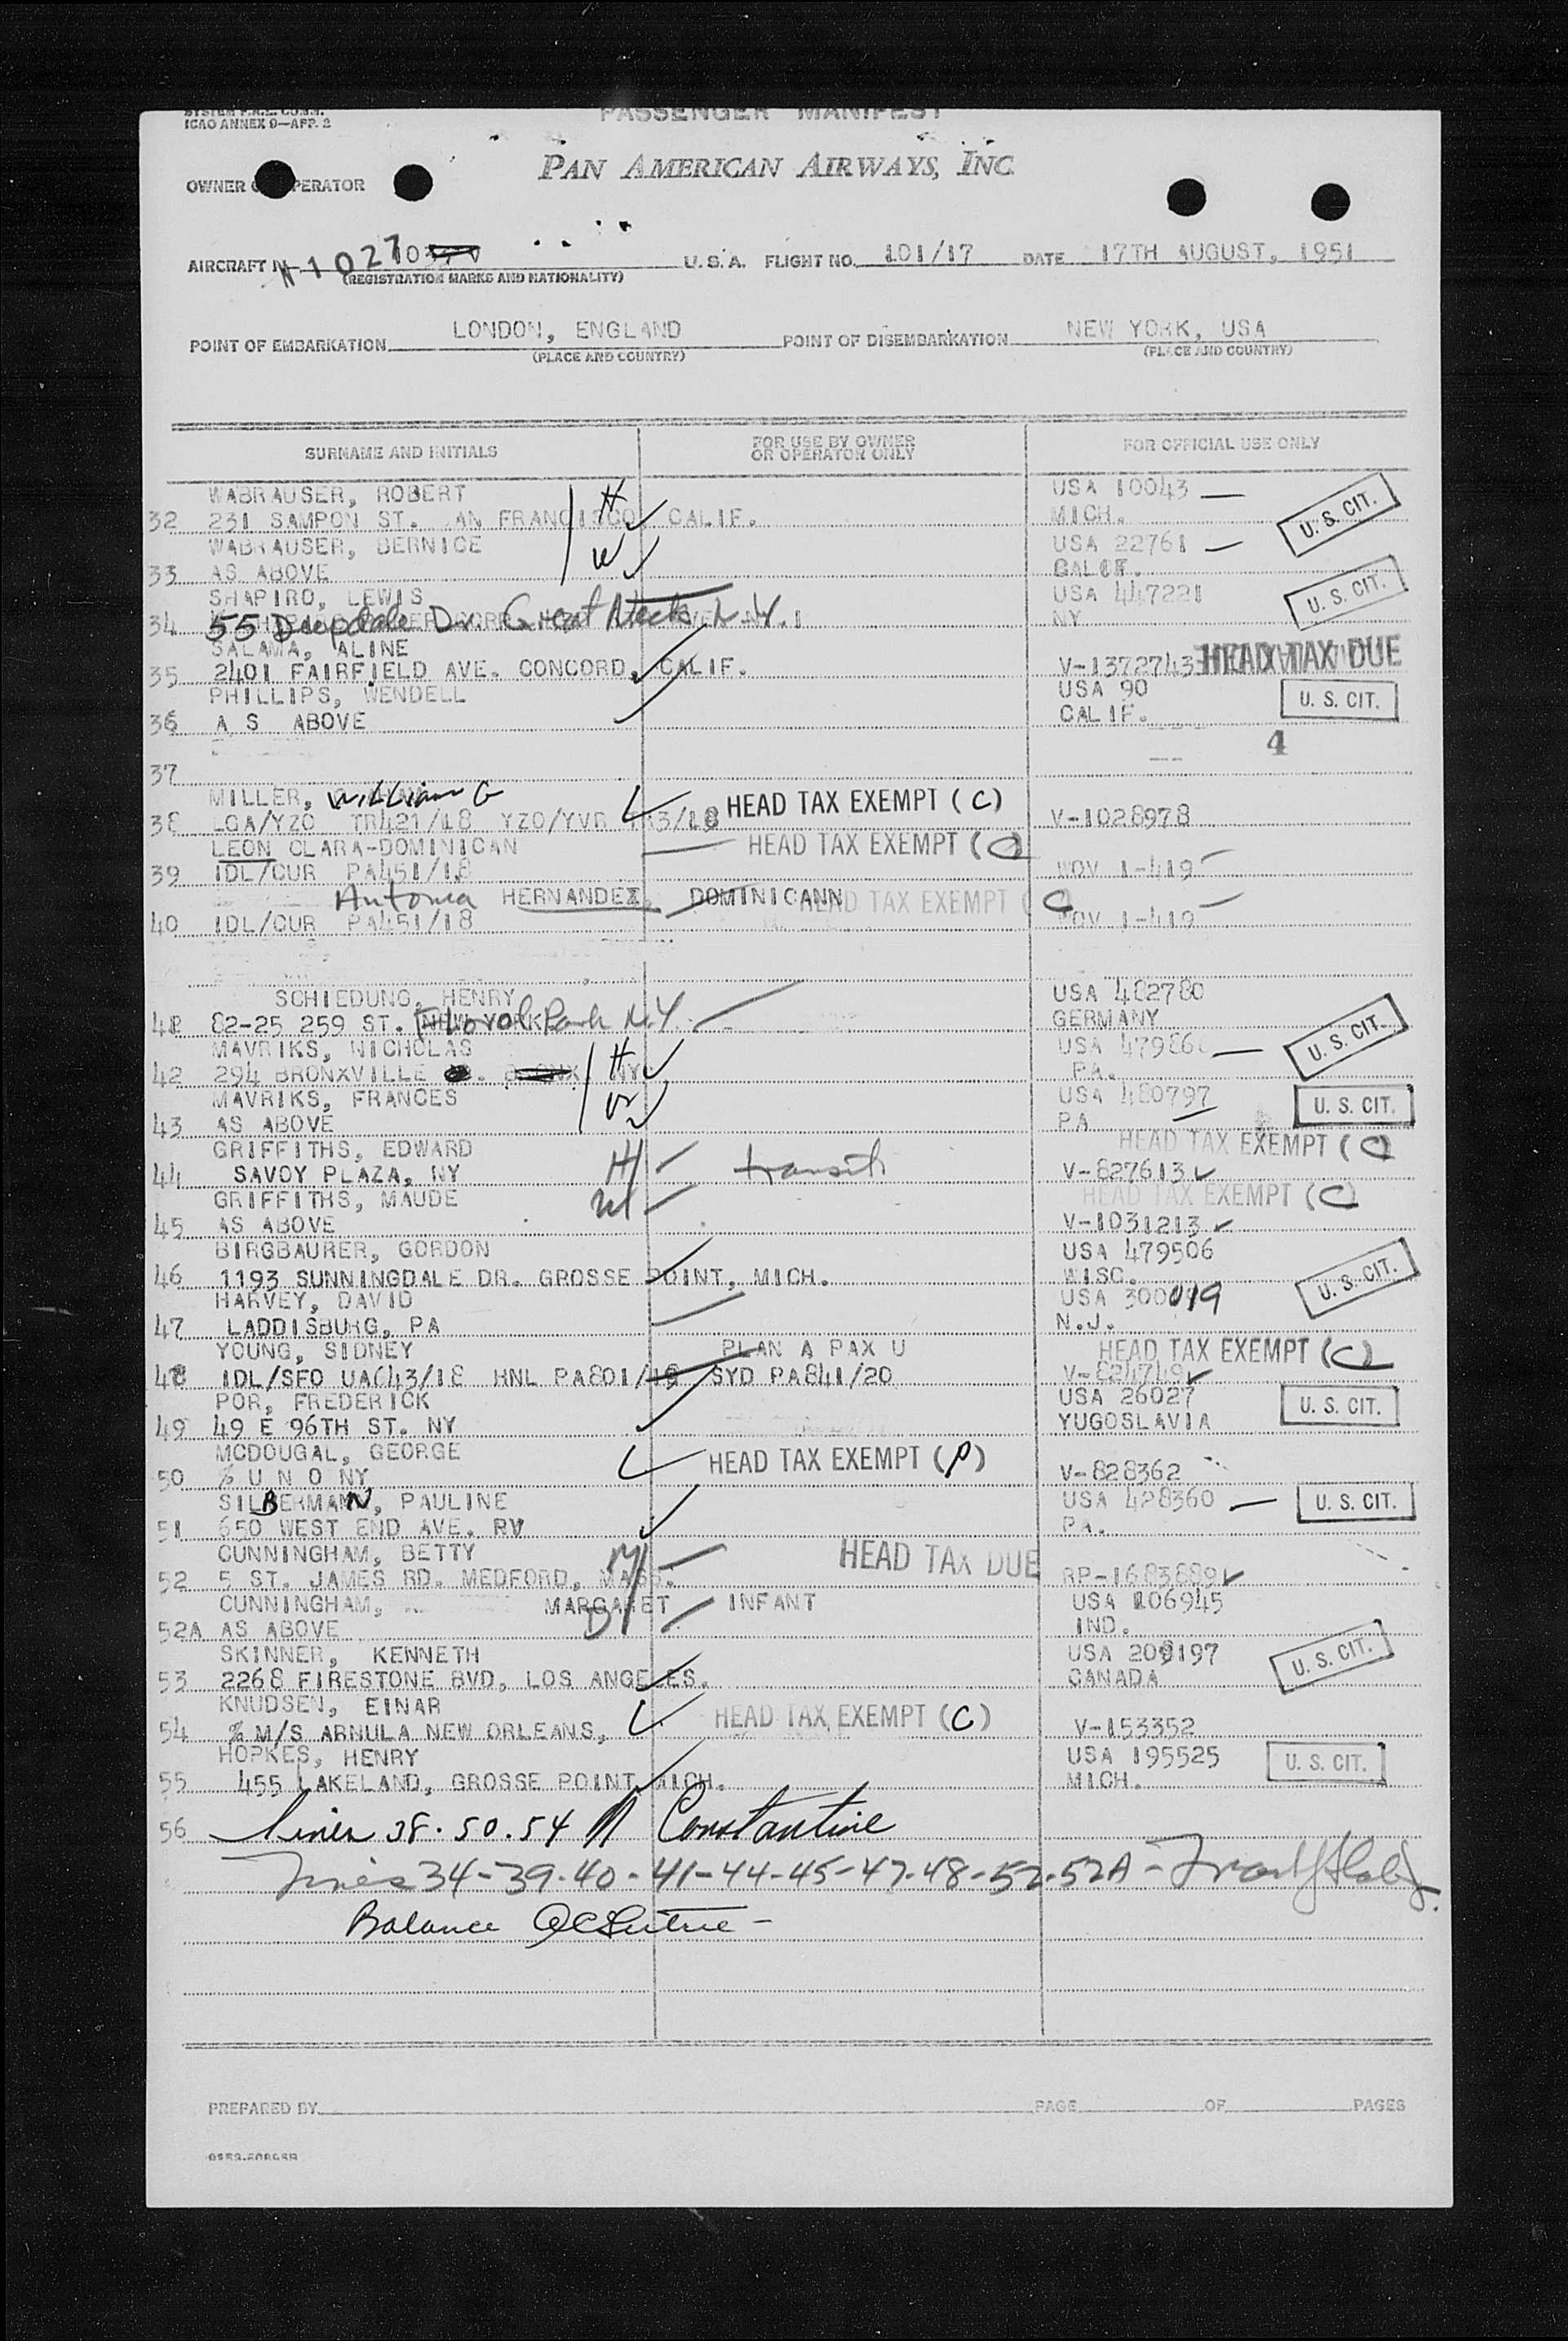 ICAO ANNEX 9—APP. 2
PASSENGER MANIFEST
PAN AMERICAN AIRWAYS, INC.
OWNER OPERATOR
AIRCRAFT N 1027 U.S.A. FLIGHT NO. 101/17 DATE 17TH AUGUST, 1951
(REGISTRATION MARKS AND NATIONALITY)
POINT OF EMBARKATION LONDON, ENGLAND POINT OF DISEMBARKATION NEW YORK, USA
(PLACE AND COUNTRY) (PLACE AND COUNTRY)
SURNAME AND INITIALS FOR USE BY OWNER OR OPERATOR ONLY FOR OFFICIAL USE ONLY
WABRAUSER, ROBERT H USA 10043
32 231 SAMPON ST. AN FRANCISCO, CALIF. MICH. U. S. CIT.
WABRAUSER, BERNICE W USA 22761
33 AS ABOVE CALIF.
SHAPIRO, LEWIS USA 447221 U. S. CIT.
34 55 Deepdale Dr. Great Neck N.Y. NY
SALAMA, ALINE
35 2401 FAIRFIELD AVE. CONCORD, CALIF. V-1372743 HEAD TAX DUE
PHILLIPS, WENDELL USA 90
36 A S ABOVE CALIF. U. S. CIT.
4
37
MILLER, William G HEAD TAX EXEMPT (C)
38 LGA/YZO TR421/18 YZO/YVR 3/18 V-1028978
LEON CLARA-DOMINICAN HEAD TAX EXEMPT (C)
39 IDL/CUR PA451/18 WOV 1-419
Antonia HERNANDEZ, DOMINICANN HEAD TAX EXEMPT (C
40 IDL/CUR PA451/18 WOV 1-419
SCHIEDUNG, HENRY USA 482780
41 82-25 259 ST. Floral Park N.Y. GERMANY
MAVRIKS, NICHOLAS H USA 47986 U. S. CIT.
42 294 BRONXVILLE NY PA.
MAVRIKS, FRANCES W USA 480797
43 AS ABOVE PA U. S. CIT.
GRIFFITHS, EDWARD HEAD TAX EXEMPT (C)
44 SAVOY PLAZA, NY H transit V-827613
GRIFFITHS, MAUDE W HEAD TAX EXEMPT (C)
45 AS ABOVE V-1031213
BIRGBAURER, GORDON USA 479506
46 1193 SUNNINGDALE DR. GROSSE POINT, MICH. WISC. U. S. CIT.
HARVEY, DAVID USA 300019
47 LADDISBURG, PA N.J.
YOUNG, SIDNEY PLAN A PAX U HEAD TAX EXEMPT (C)
48 IDL/SFO UA643/18 HNL PA801/18 SYD PA841/20 V-824749
POR, FREDERICK USA 26027
49 49 E 96TH ST. NY YUGOSLAVIA U. S. CIT.
MCDOUGAL, GEORGE HEAD TAX EXEMPT (P)
50 % U N O NY V-828362
SILBERMANN, PAULINE USA 428360 U. S. CIT.
51 650 WEST END AVE. RV PA.
CUNNINGHAM, BETTY M HEAD TAX DUE
52 5 ST. JAMES RD. MEDFORD, MASS. RP-1683889
CUNNINGHAM, MARGARET INFANT USA 106945
52A AS ABOVE D IND.
SKINNER, KENNETH USA 209197 U. S. CIT.
53 2268 FIRESTONE BVD, LOS ANGELES. CANADA
KNUDSEN, EINAR HEAD TAX EXEMPT (C)
54 % M/S ARNULA NEW ORLEANS, V-153352
HOPKES, HENRY USA 195525 U. S. CIT.
55 455 LAKELAND, GROSSE POINT MICH. MICH.
56 Lines 38. 50. 54 Constantine
Lines 34-39-40-41-44-45-47-48-52-52A -
Balance
PREPARED BY PAGE OF PAGES